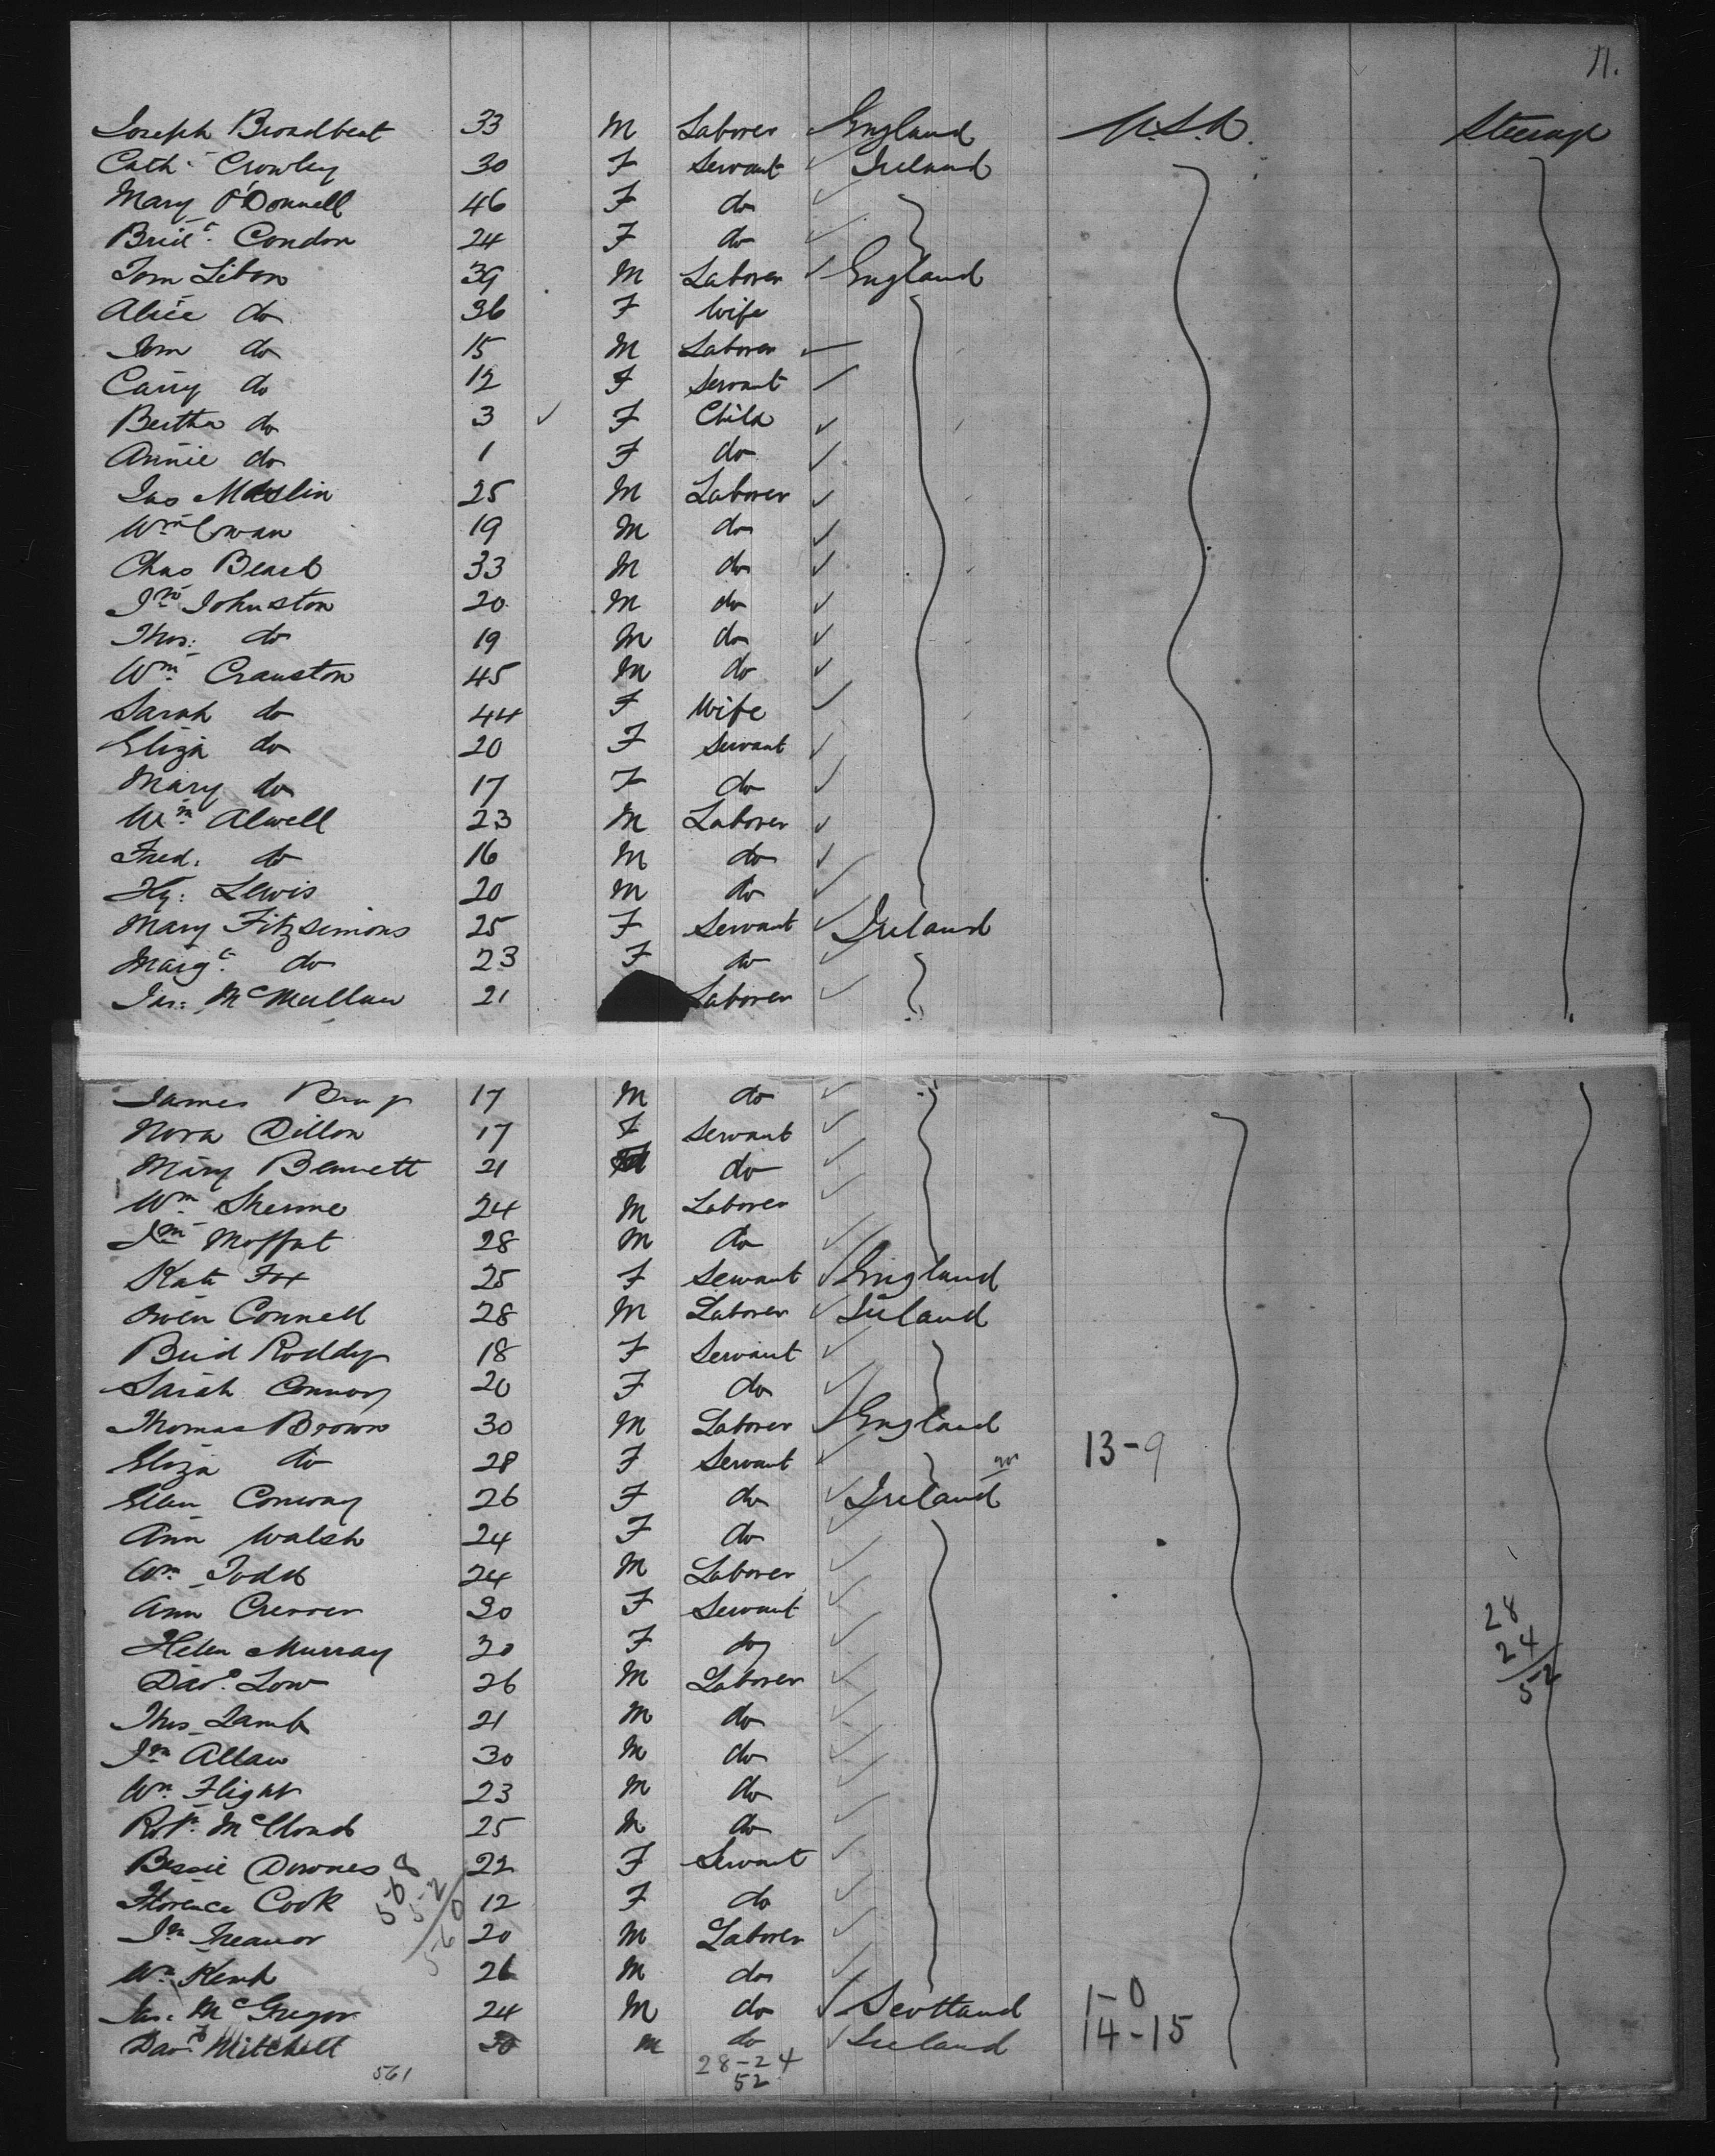 11.
Joseph Broadbent 33 M Laborer England U.S.A. Steerage
Cath. Crowley 30 F Servant Ireland
Mary O'Donnell 46 F do
Bridt. Condon 24 F do
Tom Libon 39 M Laborer England
Alice do 36 F Wife
Tom do 15 M Laborer
Carry do 12 F Servant
Bertha do 3 F Child
Annie do 1 F do
Jas Maslin 25 M Laborer
Wm Cowan 19 M do
Chas Beard 33 M do
Jno Johnston 20 M do
Thos: do 19 M do
Wm Cranston 45 M do
Sarah do 44 F Wife
Eliza do 20 F Servant
Mary do 17 F do
Wm Alwell 23 M Laborer
Fred. do 16 M do
Hy: Lewis 20 M do
Mary Fitzsimons 25 F Servant Ireland
Margt. do 23 F do
Jas: McMullan 21 Laborer
James 17 M do
Nora Dillon 17 F Servant
Mary Bennett 21 do
Wm 24 M Laborer
Jno Moffat 28 M do
Kate Fox 25 F Servant England
Owen Connell 28 M Laborer Ireland
Brid Roddy 18 F Servant
Sarah Connor 20 F do
Thomas Brown 30 M Laborer England
Eliza do 28 F Servant 13-9
Ellen Conway 26 F do Ireland
Ann Walsh 24 F do
Wm Todd 24 M Laborer
Ann 30 F Servant 28
Helen Murray 30 F do 24
Davd. Low 26 M Laborer 52
Thos Lamb 21 M do
Jno Allan 30 M do
Wm Flight 23 M do
Robt. McCloud 25 M do
Bessie Downes 22 F Servant
Florence Cook 12 F do
Jno Treanor 20 M Laborer
Wm Kent 26 M do
Jas. McGregor 24 M do Scotland 1-0
Davd Mitchell 30 M do Ireland 14-15
561 28-24
52